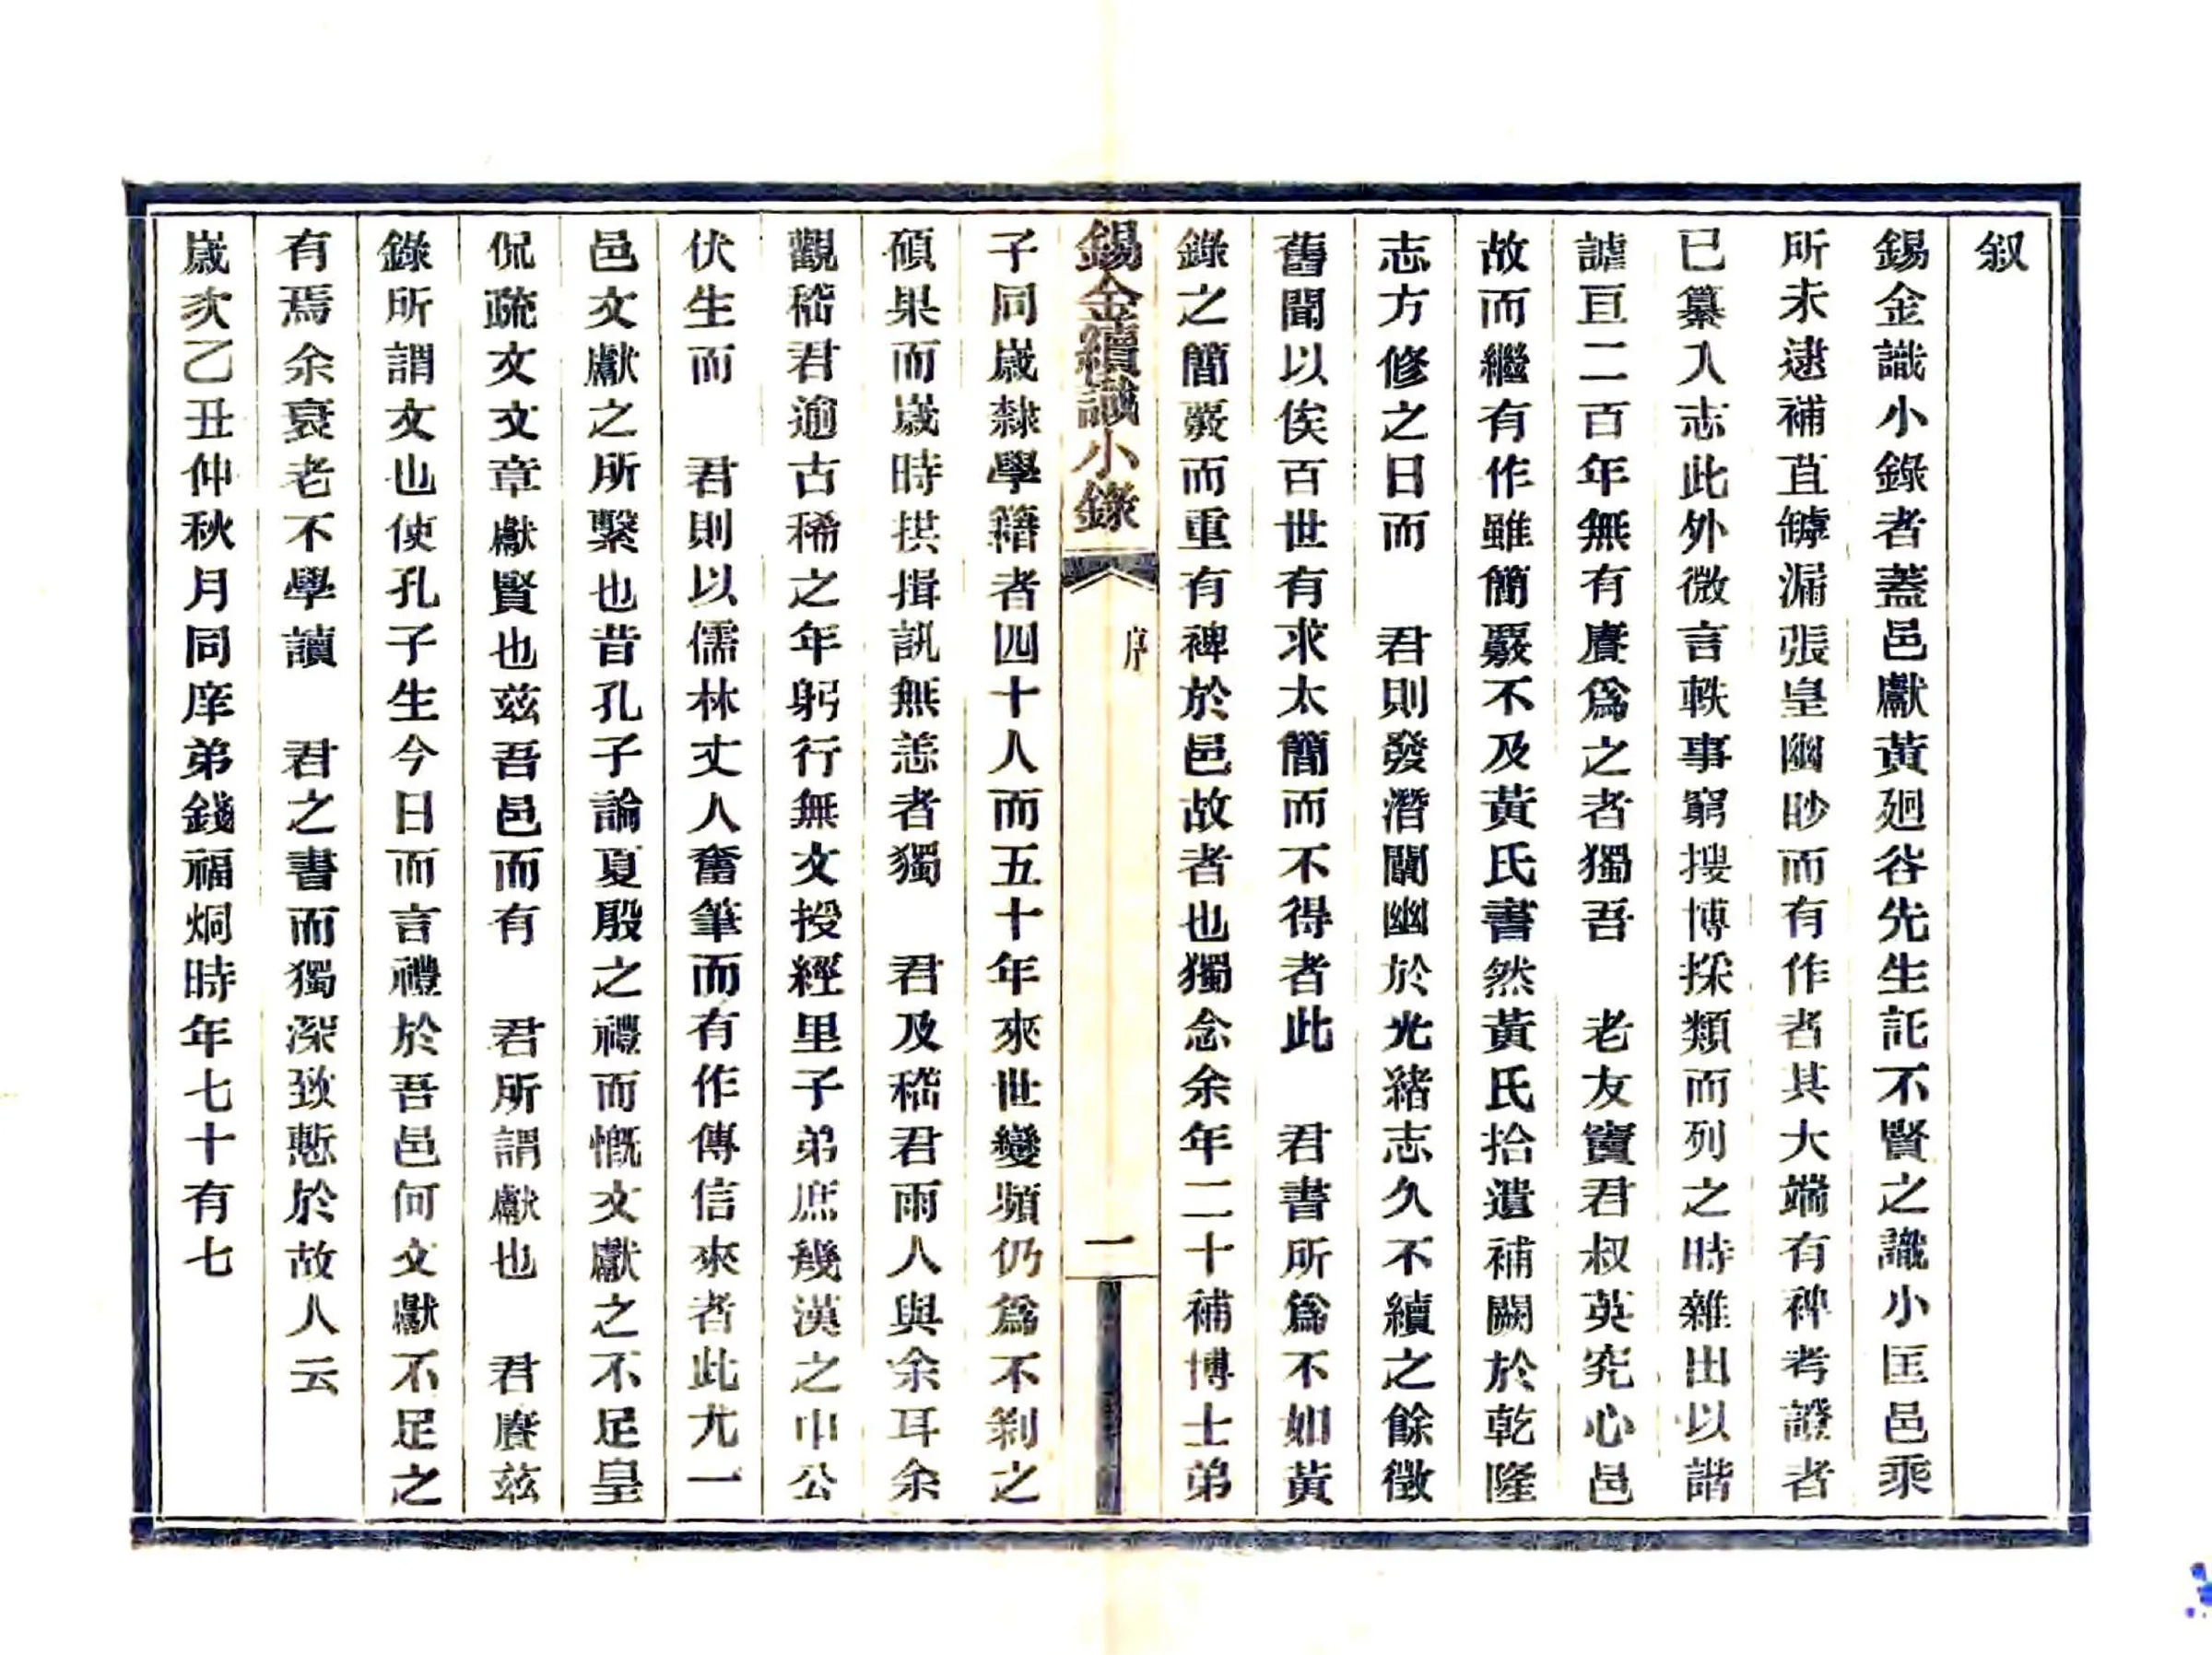 叙
錫金識小錄者蓋邑獻黃廻谷先生託不賢之識小匡邑乘
所未逮補苴罅漏張皇幽眇而有作者其大端有裨考證者
已纂入志此外微言軼事窮搜博採類而列之時雜出以諧
謔亘二百年無有賡爲之者獨吾　老友竇君叔英究心邑
故而繼有作雖簡覈不及黃氏書然黃氏拾遺補闕於乾隆
志方修之日而　君則發潛闡幽於光緒志久不續之餘徵
舊聞以俟百世有求太簡而不得者此　君書所爲不如黃
錄之簡覈而重有裨於邑故者也獨念余年二十補博士弟
錫金續識小錄
序
一
子同歲隸學籍者四十人而五十年來世變頻仍爲不剝之
碩果而歲時拱揖訊無恙者獨　君及嵇君雨人與余耳余
觀嵇君逾古稀之年躬行無文授經里子弟庶幾漢之巾公
伏生而　君則以儒林丈人奮筆而有作傳信來者此尤一
邑文獻之所繫也昔孔子論夏殷之禮而慨文獻之不足皇
侃疏文文章獻賢也茲吾邑而有　君所謂獻也　君賡茲
錄所謂文也使孔子生今日而言禮於吾邑何文獻不足之
有焉余衰老不學讀　君之書而獨深致慙於故人云
歲次乙丑仲秋月同庠弟錢福烱時年七十有七